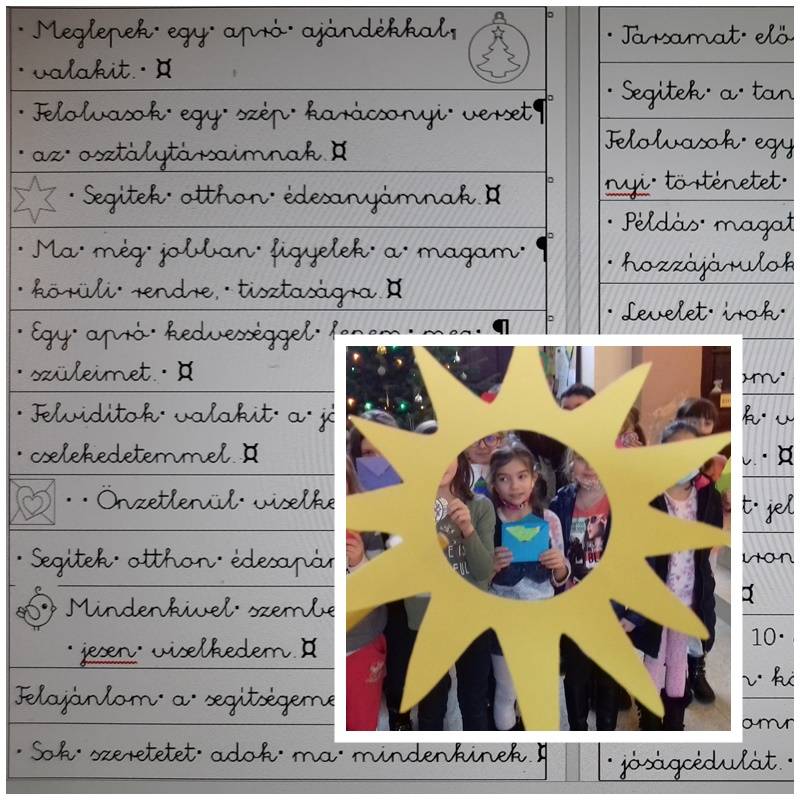 Meglepek egy apró ajándékkal
valakit.
Felolvasok egy szép karácsonyi verset
az osztálytársaimnak.
Segítek otthon édesanyámnak.
Ma még jobban figyelek a magam
körüli rendre, tisztaságra.
Egy apró kedvességgel lepem meg
szüleimet.
Felvidítok valakit a
cselekedetemmel.
Önzetlenül
Segítek otthon
Mindenkivel
jesen viselkedem.
Felajánlom a
Sok szeretetet adok ma mindenkinek.
Társamat
Segítek a
Felolvasok egy
nyi történetet
Példás
hozzájárulok
Levelet írok
10.
jóságcédulát.